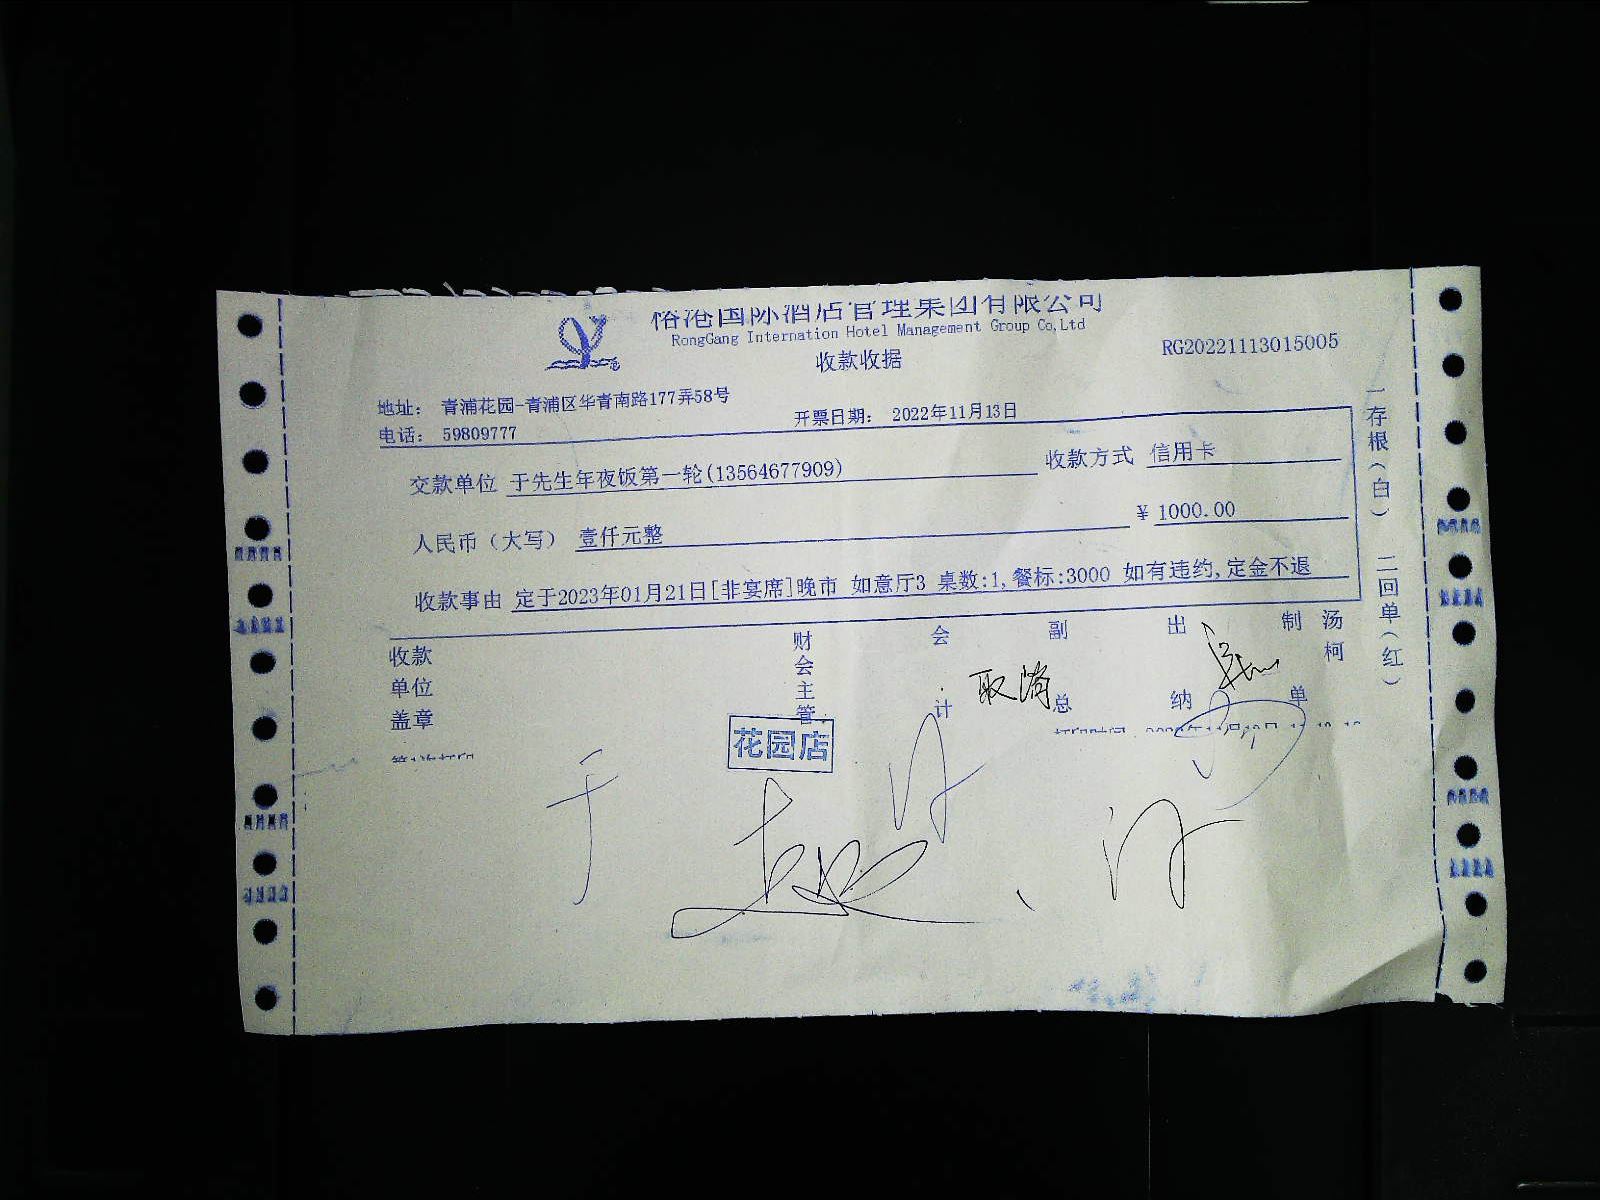 俗沧国际酒店管理集团有限公司
RongGang Internation Hotel Management Group Co,Ltd
收款收据
RG20221113015005
地址： 青浦花园-青浦区华青南路177弄58号
电话： 59809777
开票日期： 2022年11月13日
交款单位 于先生年夜饭第一轮(13564677909)
收款方式 信用卡
人民币（大写） 壹仟元整
¥ 1000.00
收款事由 定于2023年01月21日[非宴席]晚市 如意厅3 桌数:1,餐标:3000 如有违约,定金不退
收款单位盖章
财会主管
会计
副总
出纳
制单
汤柯
取消
花园店
一存根（白） 二回单（红）